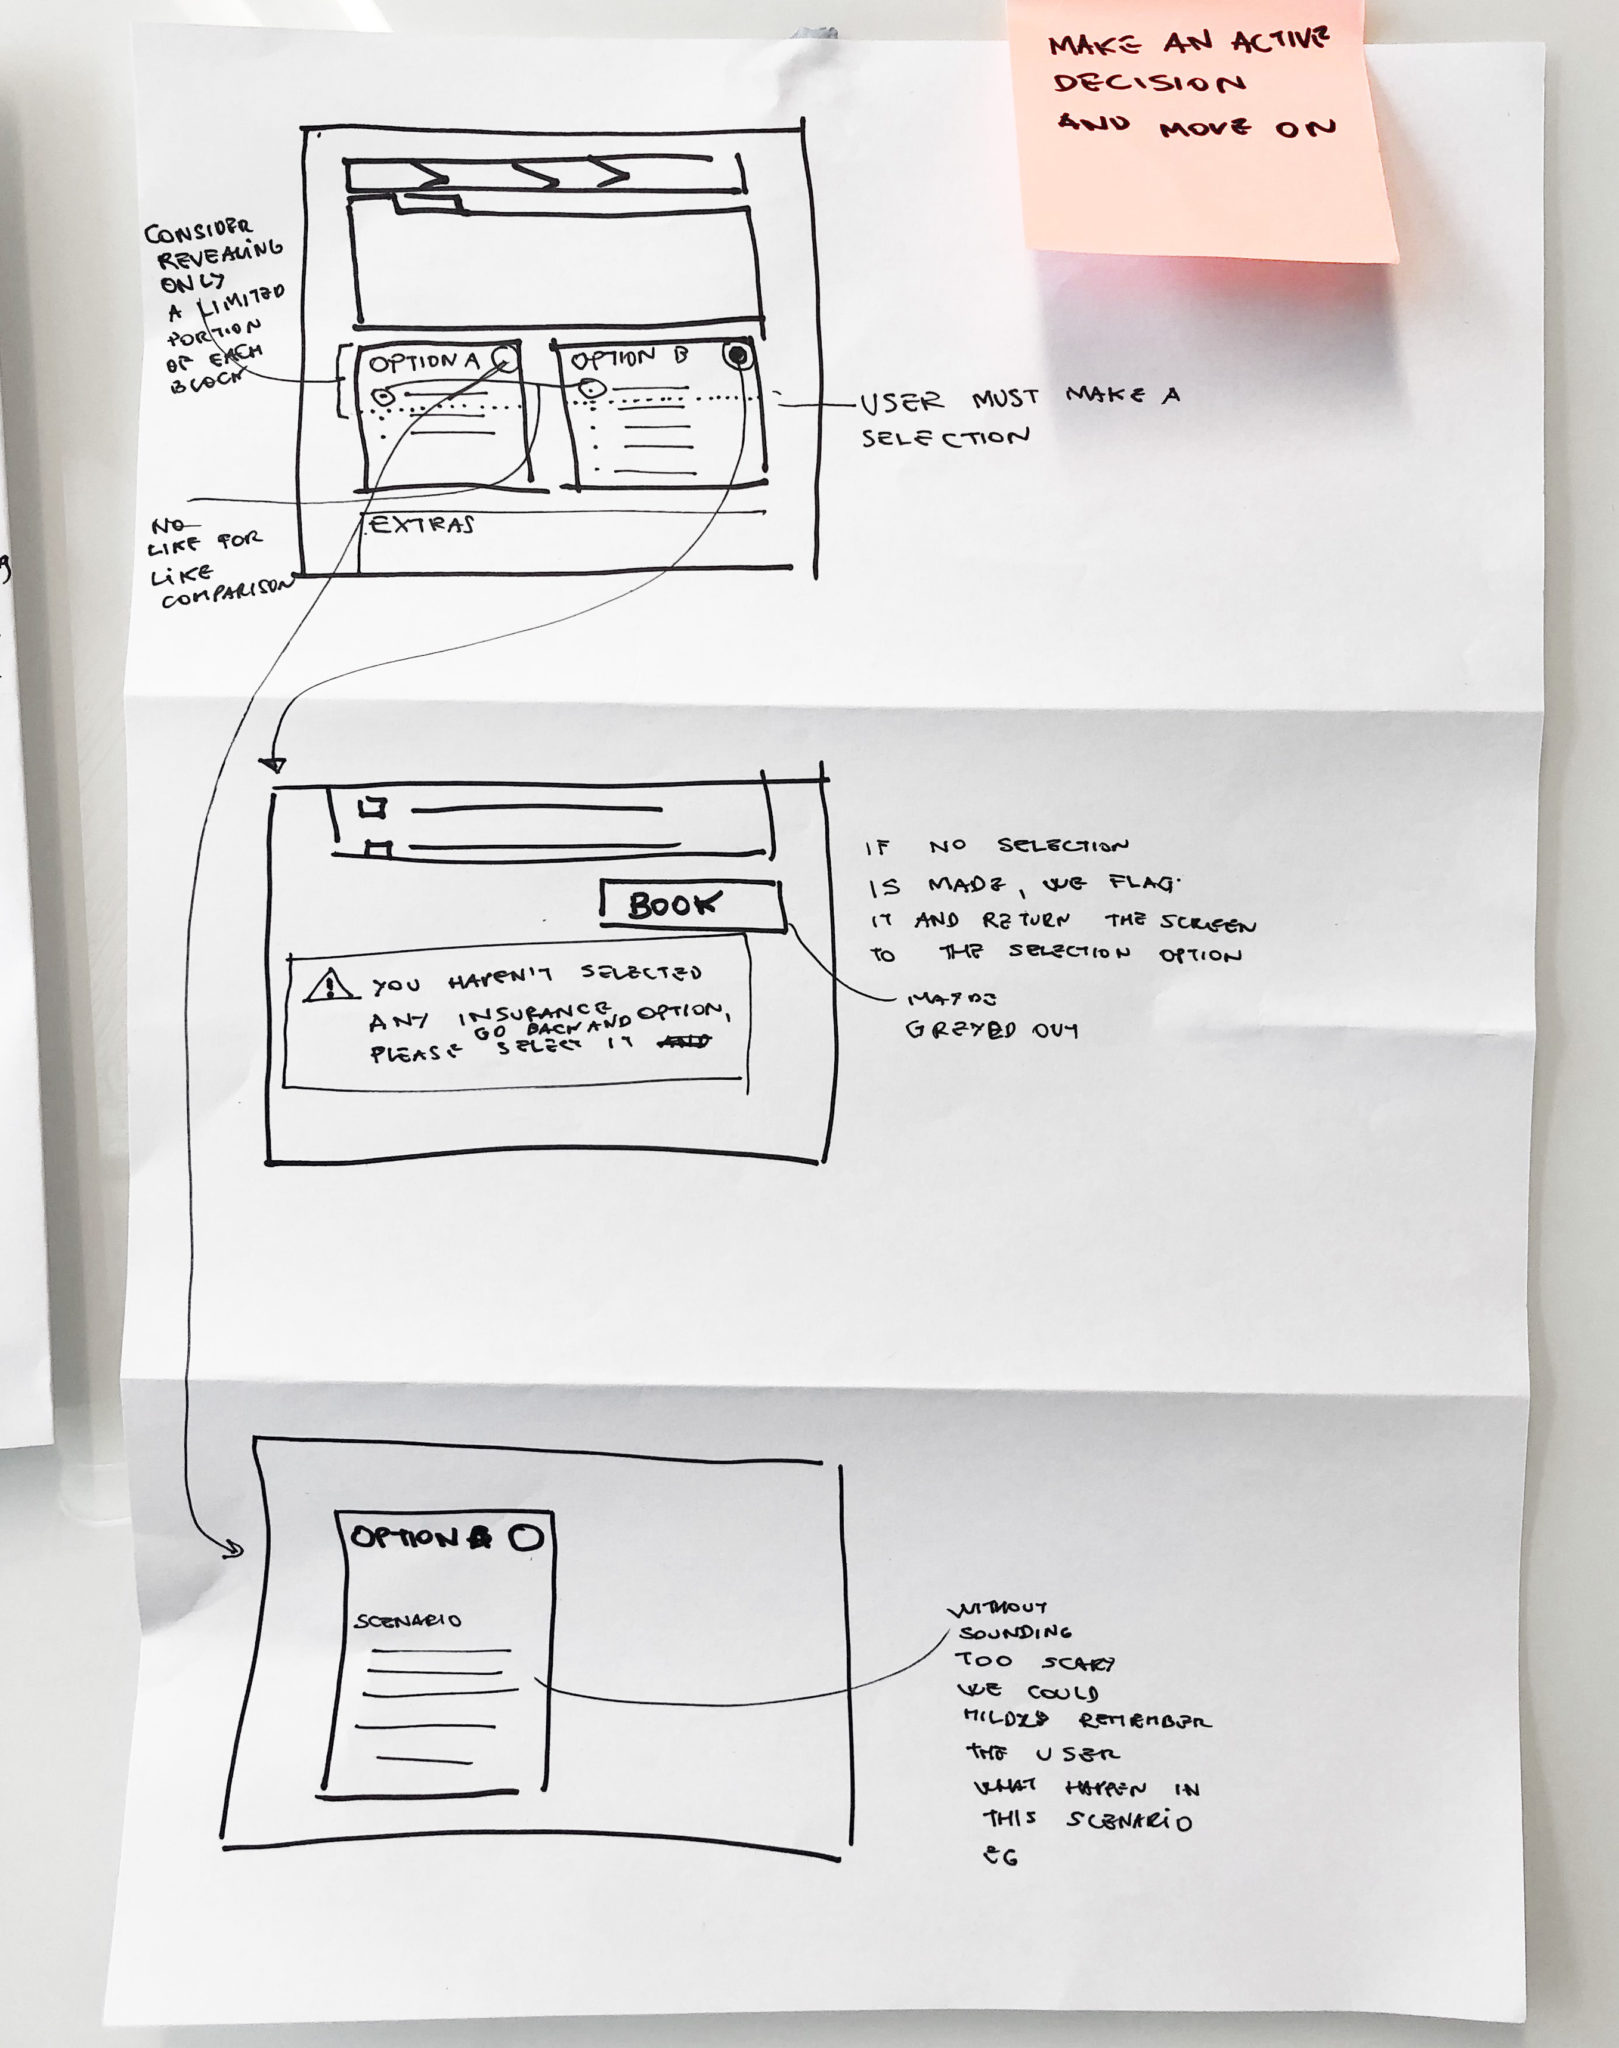 MAKE AN ACTIVE
DECISION
AND MOVE ON
CONSIDER
REVEALING
ONLY
A LIMITED
PORTION
OF EACH
BLOCK
OPTION A
OPTION B
USER MUST MAKE A
SELECTION
EXTRAS
NO
LIKE FOR
LIKE
COMPARISON
IF NO SELECTION
IS MADE, WE FLAG
IT AND RETURN THE SCREEN
TO THE SELECTION OPTION
BOOK
MAYBE
GREYED OUT
YOU HAVEN'T SELECTED
ANY INSURANCE OPTION,
GO BACK AND
PLEASE SELECT IT AND
OPTION
SCENARIO
WITHOUT
SOUNDING
TOO SCARY
WE COULD
MILDLY REMEMBER
THE USER
WHAT HAPPEN IN
THIS SCENARIO
EG